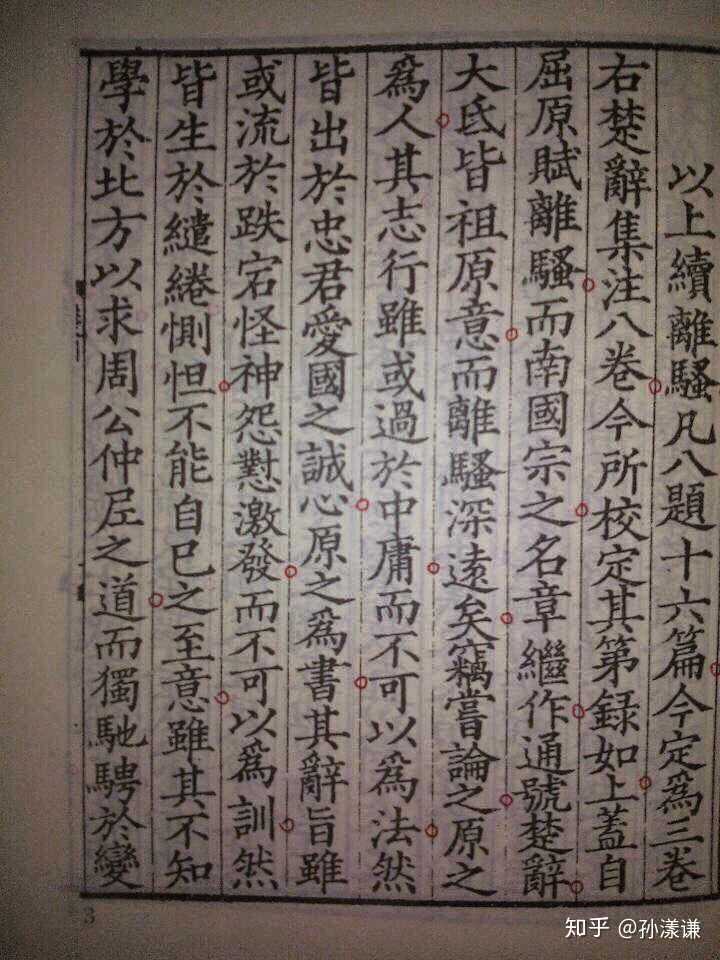 以上續離騷凡八題十六篇今定爲三卷
右楚辭集注八卷今所校定其第録如上蓋自
屈原賦離騷而南國宗之名章繼作通號楚辭
大氐皆祖原意而離騷深遠矣竊嘗論之原之
爲人其志行雖或過於中庸而不可以爲法然
皆出於忠君愛國之誠心原之爲書其辭旨雖
或流於跌宕怪神怨懟激發而不可以爲訓然
皆生於繾綣惻怛不能自已之至意雖其不知
學於北方以求周公仲尼之道而獨馳騁於變
3
知乎 @孙漾谦